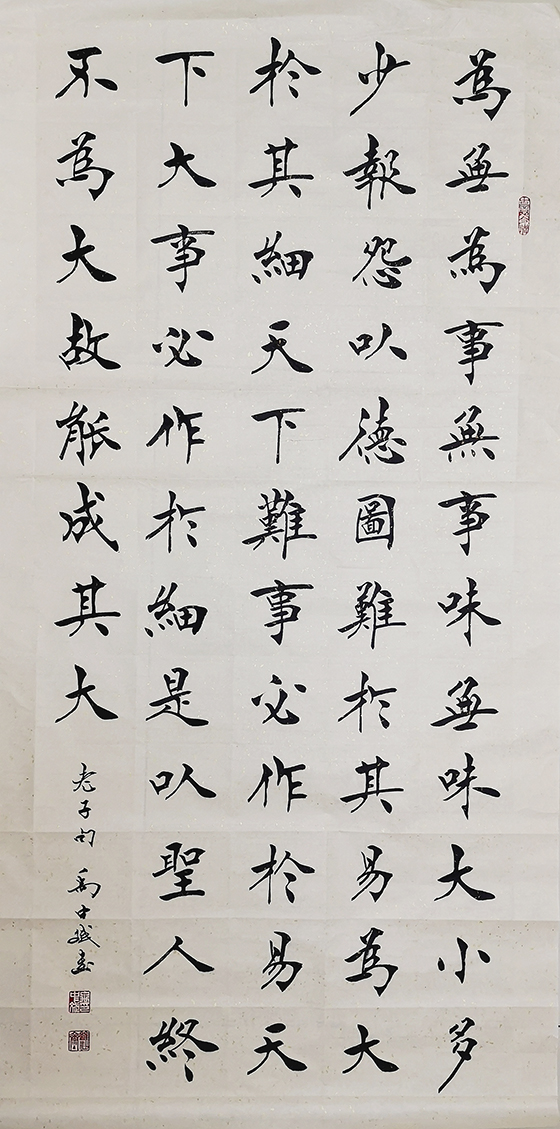 為無為事無事味無味大小多
少報怨以德圖難於其易為大
於其細天下難事必作於易天
下大事必作於細是以聖人終
不為大故能成其大
老子句